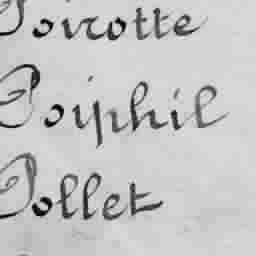 Poirotte
Poiphil
Pollet